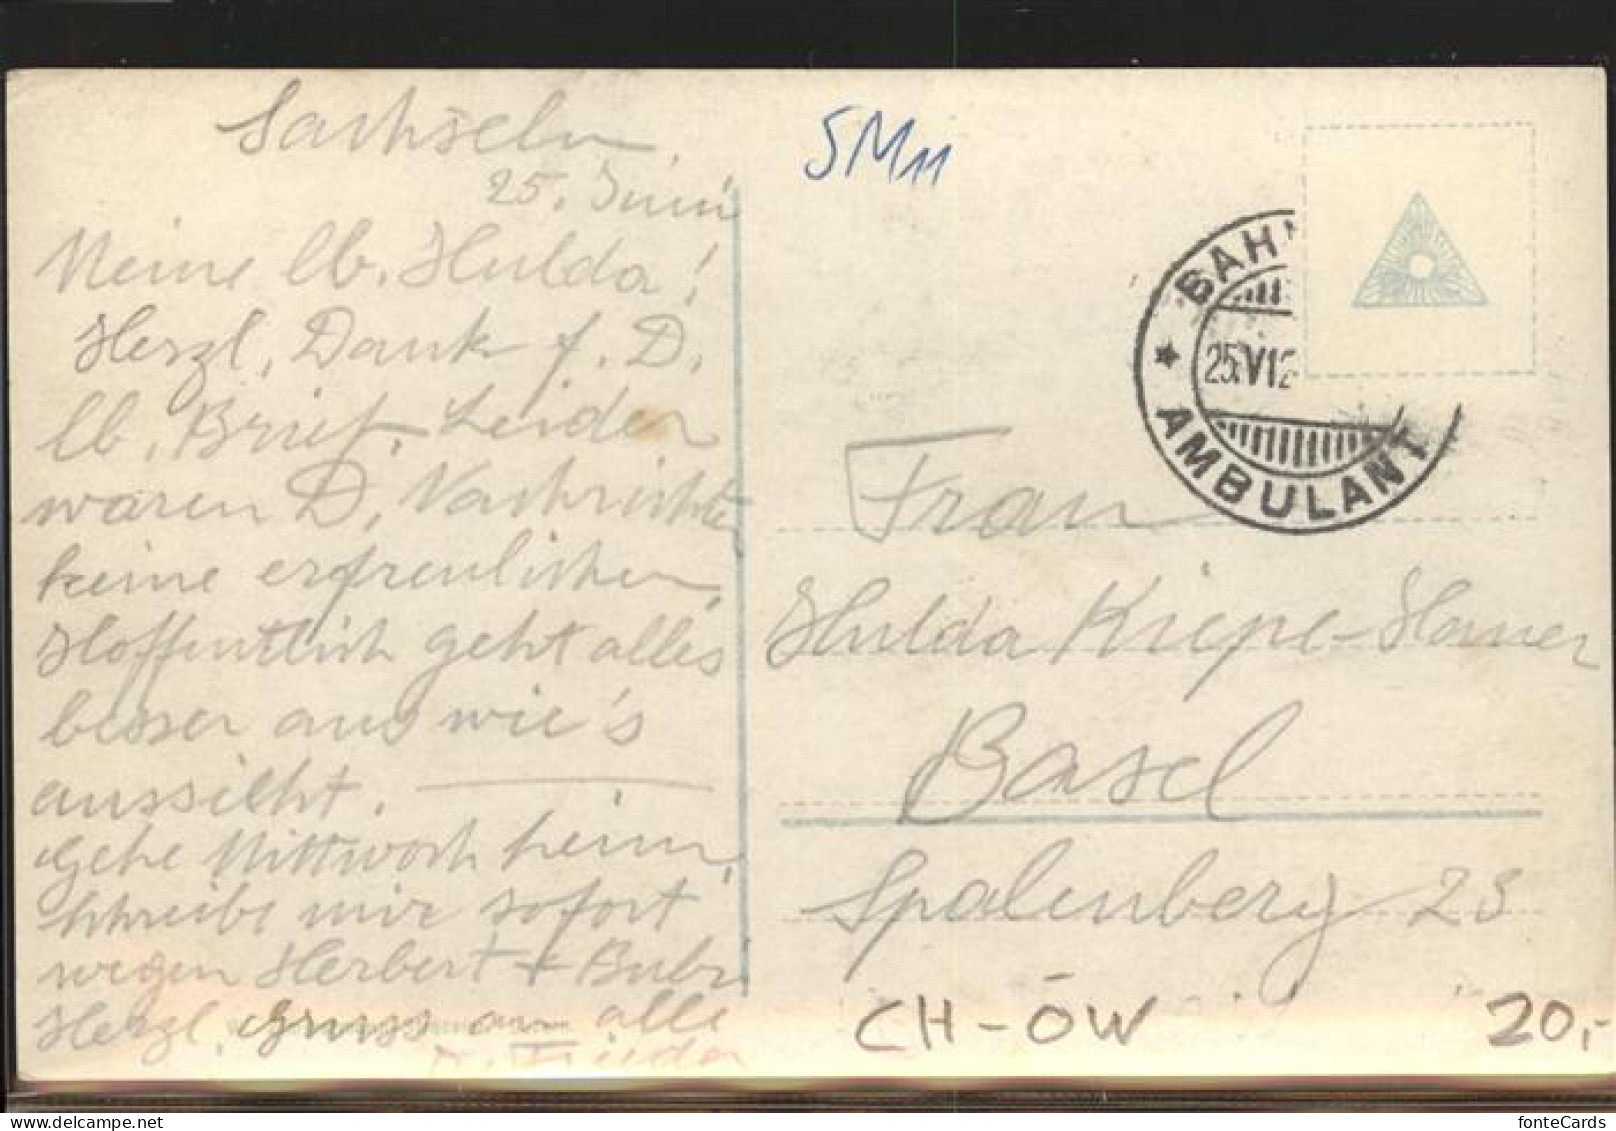 Sachseln,
25. Juni
Meine lb. Hulda!
Herzl. Dank f. D.
lb. Brief. Leider
waren D. Nachrichten
keine erfreulichen,
Hoffentlich geht alles
besser aus wie's
aussieht.
Gehe Mittwoch heim,
schreibe mir sofort
wegen Herbert + Bubi
Herzl. Gruss an alle
Frieda
5M11
BAH
25.VI2
AMBULANT
Frau
Hulda Kiepe-Hauer
Basel
Spalenberg 23
CH-OW
20,-
fonteCards